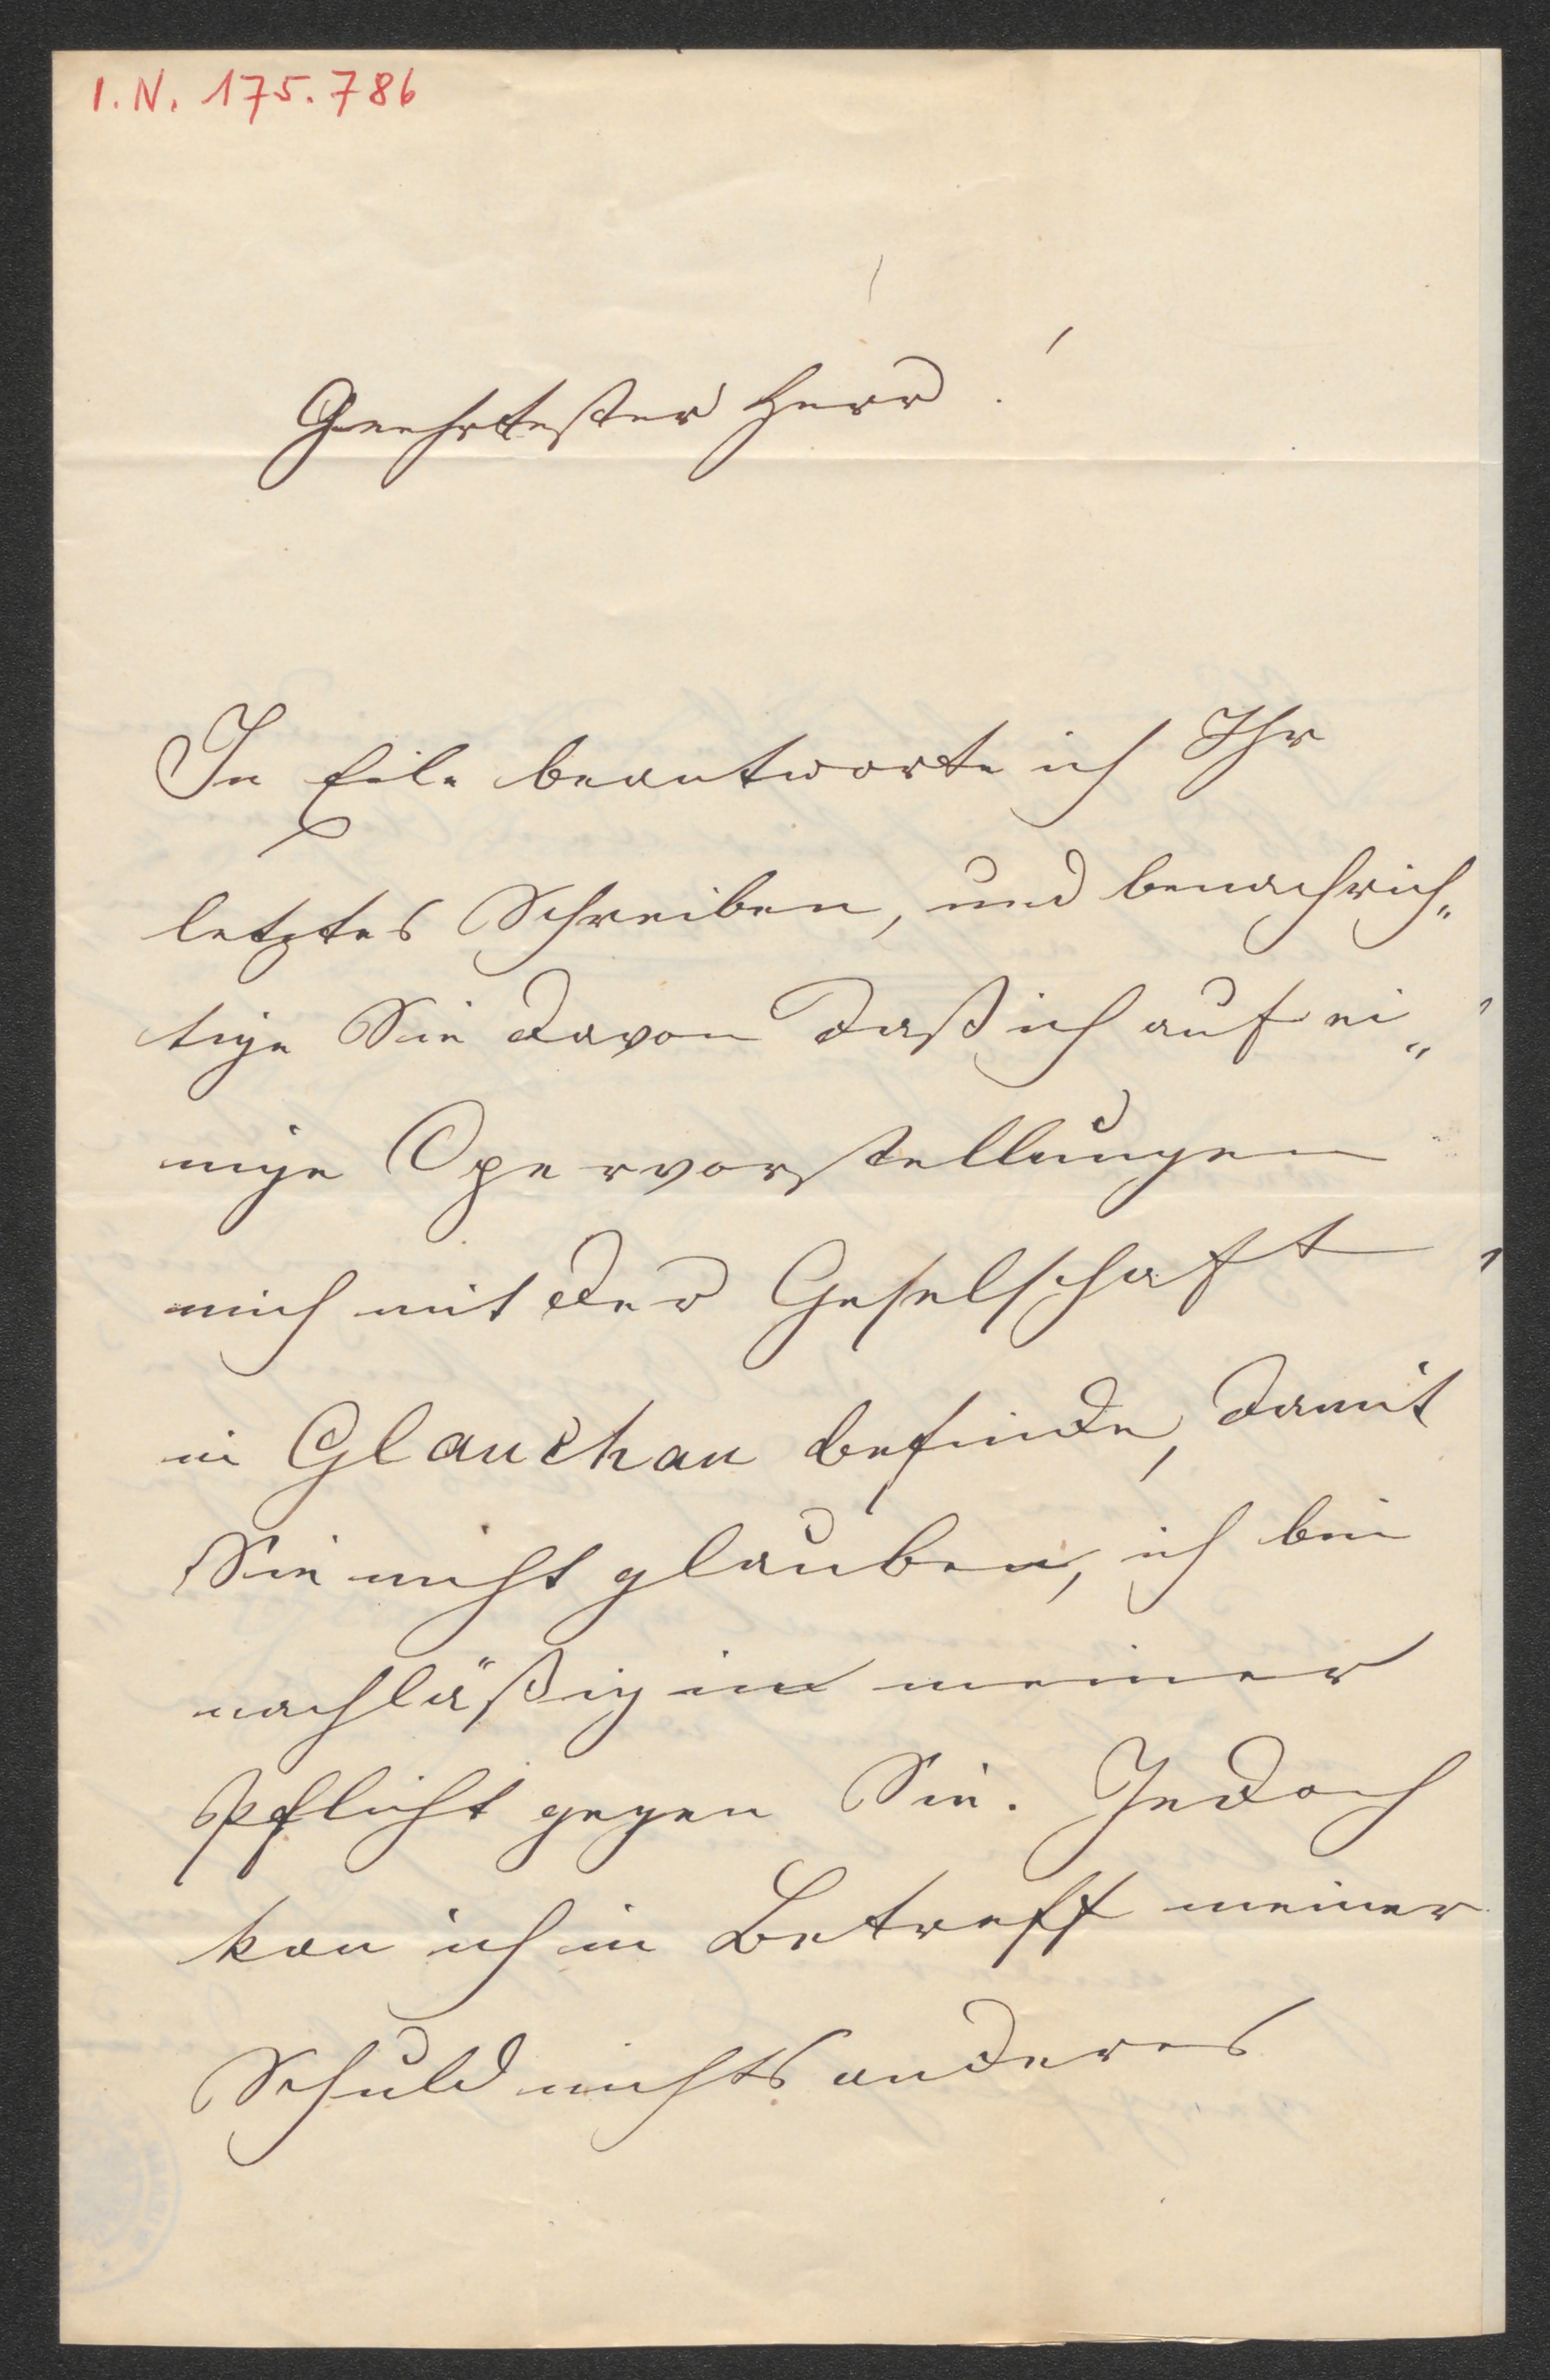 I.N. 175.786
Geehrtester Herr!
In Eile beantworte ich Ihr
letztes Schreiben, und benachrich„
tige Sie davon daß ich auf ei„
nige Opervorstellungen
mich mit der Geselschaft
in Glauchau befinde, damit
Sie nicht glauben, ich bin
nachläßig in meiner
Pflicht gegen Sie. Jedoch
kan ich in Betreff meiner
Schuld nichts anderes